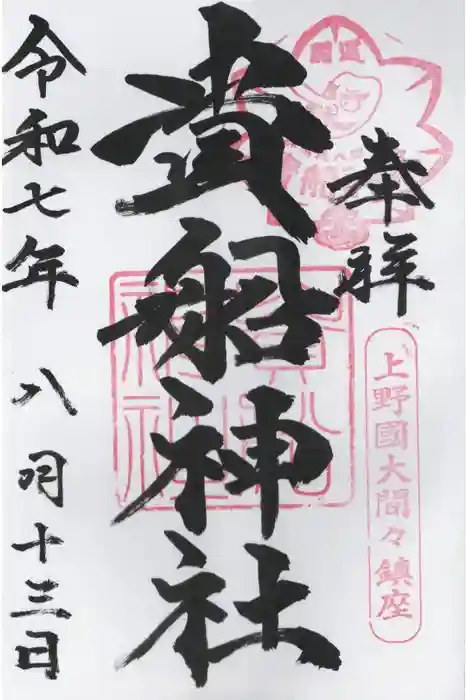 奉拝
上野國大間々鎮座
貴船神社
令和七年 八月十三日